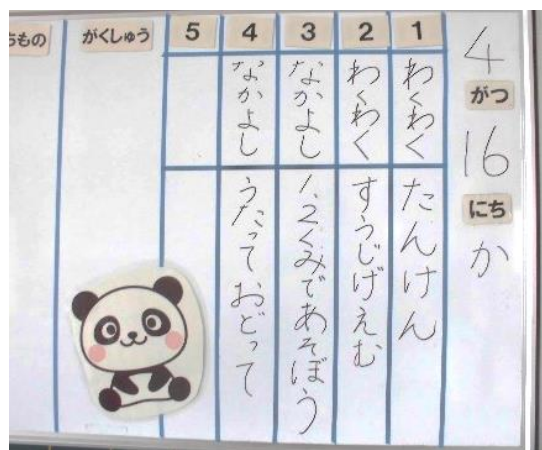 4がつ16にちか
1
わくわく
たんけん
2
わくわく
すうじげえむ
3
なかよし
1,2くみであそぼう
4
なかよし
うたっておどって
5
がくしゅう
ちもの